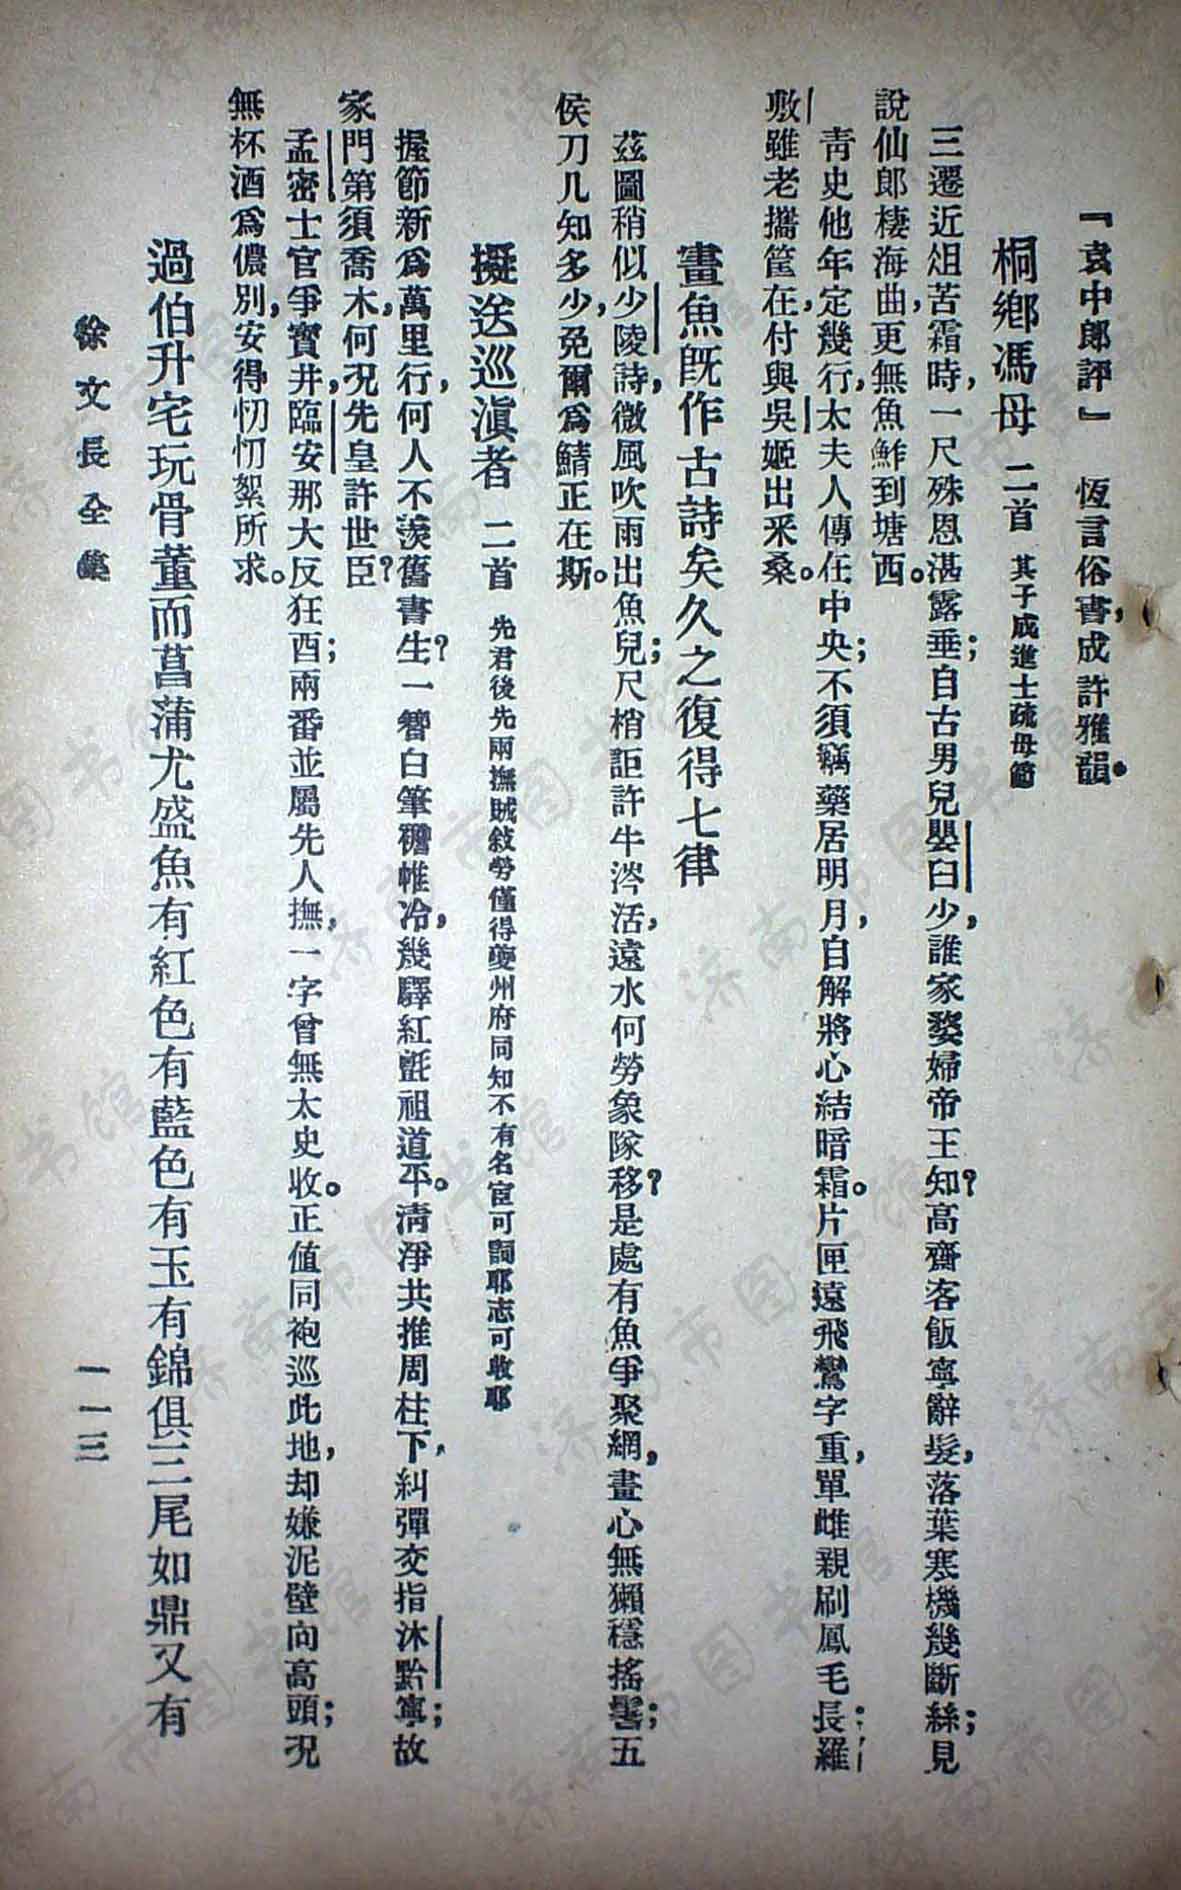 『袁中郎評』　恆言俗書，成許雅韻。
桐鄉馮母　二首　其子成進士疏母節
三遷近俎苦霜時，一尺殊恩湛露垂；自古男兒嬰臼少，誰家嫠婦帝王知？高齋客飯寧辭髮，落葉寒機幾斷絲；見
說仙郎棲海曲，更無魚鮓到塘西。
青史他年定幾行，太夫人傳在中央；不須竊藥居明月，自解將心結暗霜。片匣遠飛鸞字重，單雌親刷鳳毛長；羅
敷雖老攜筐在，付與吳姬出采桑。
畫魚旣作古詩矣久之復得七律
茲圖稍似少陵詩，微風吹雨出魚兒；尺梢詎許牛涔活，遠水何勞象隊移？是處有魚爭聚網，畫心無獺穩搖鬐；五
侯刀几知多少，免爾爲鯖正在斯。
擬送巡滇者　二首　先君後先兩撫賊敍勞僅得夔州府同知不有名宦可詞耶志可收耶
握節新爲萬里行，何人不羨舊書生？一簪白筆襜帷冷，幾驛紅氈祖道平。淸淨共推周柱下，糾彈交指沐黔寧；故
家門第須喬木，何況先皇許世臣？
孟密士官爭寶井，臨安那大反狂酉；兩番並屬先人撫，一字曾無太史收。正值同袍巡此地，却嫌泥壁向高頭；況
無杯酒爲儂別，安得忉忉絮所求。
過伯升宅玩骨董而菖蒲尤盛魚有紅色有藍色有玉有錦俱三尾如鼎又有
徐文長全集
一一三